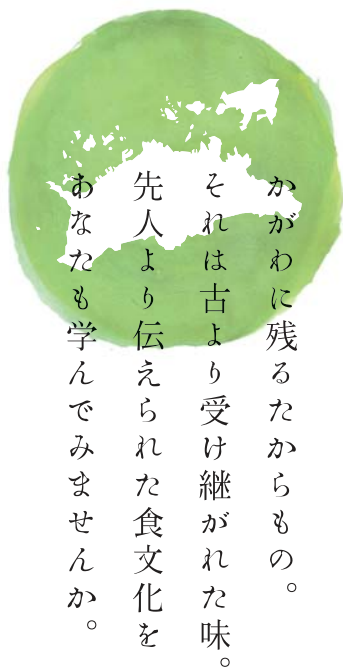 かがわに残るたからもの。
それは古より受け継がれた味。
先人より伝えられた食文化を
あなたも学んでみませんか。